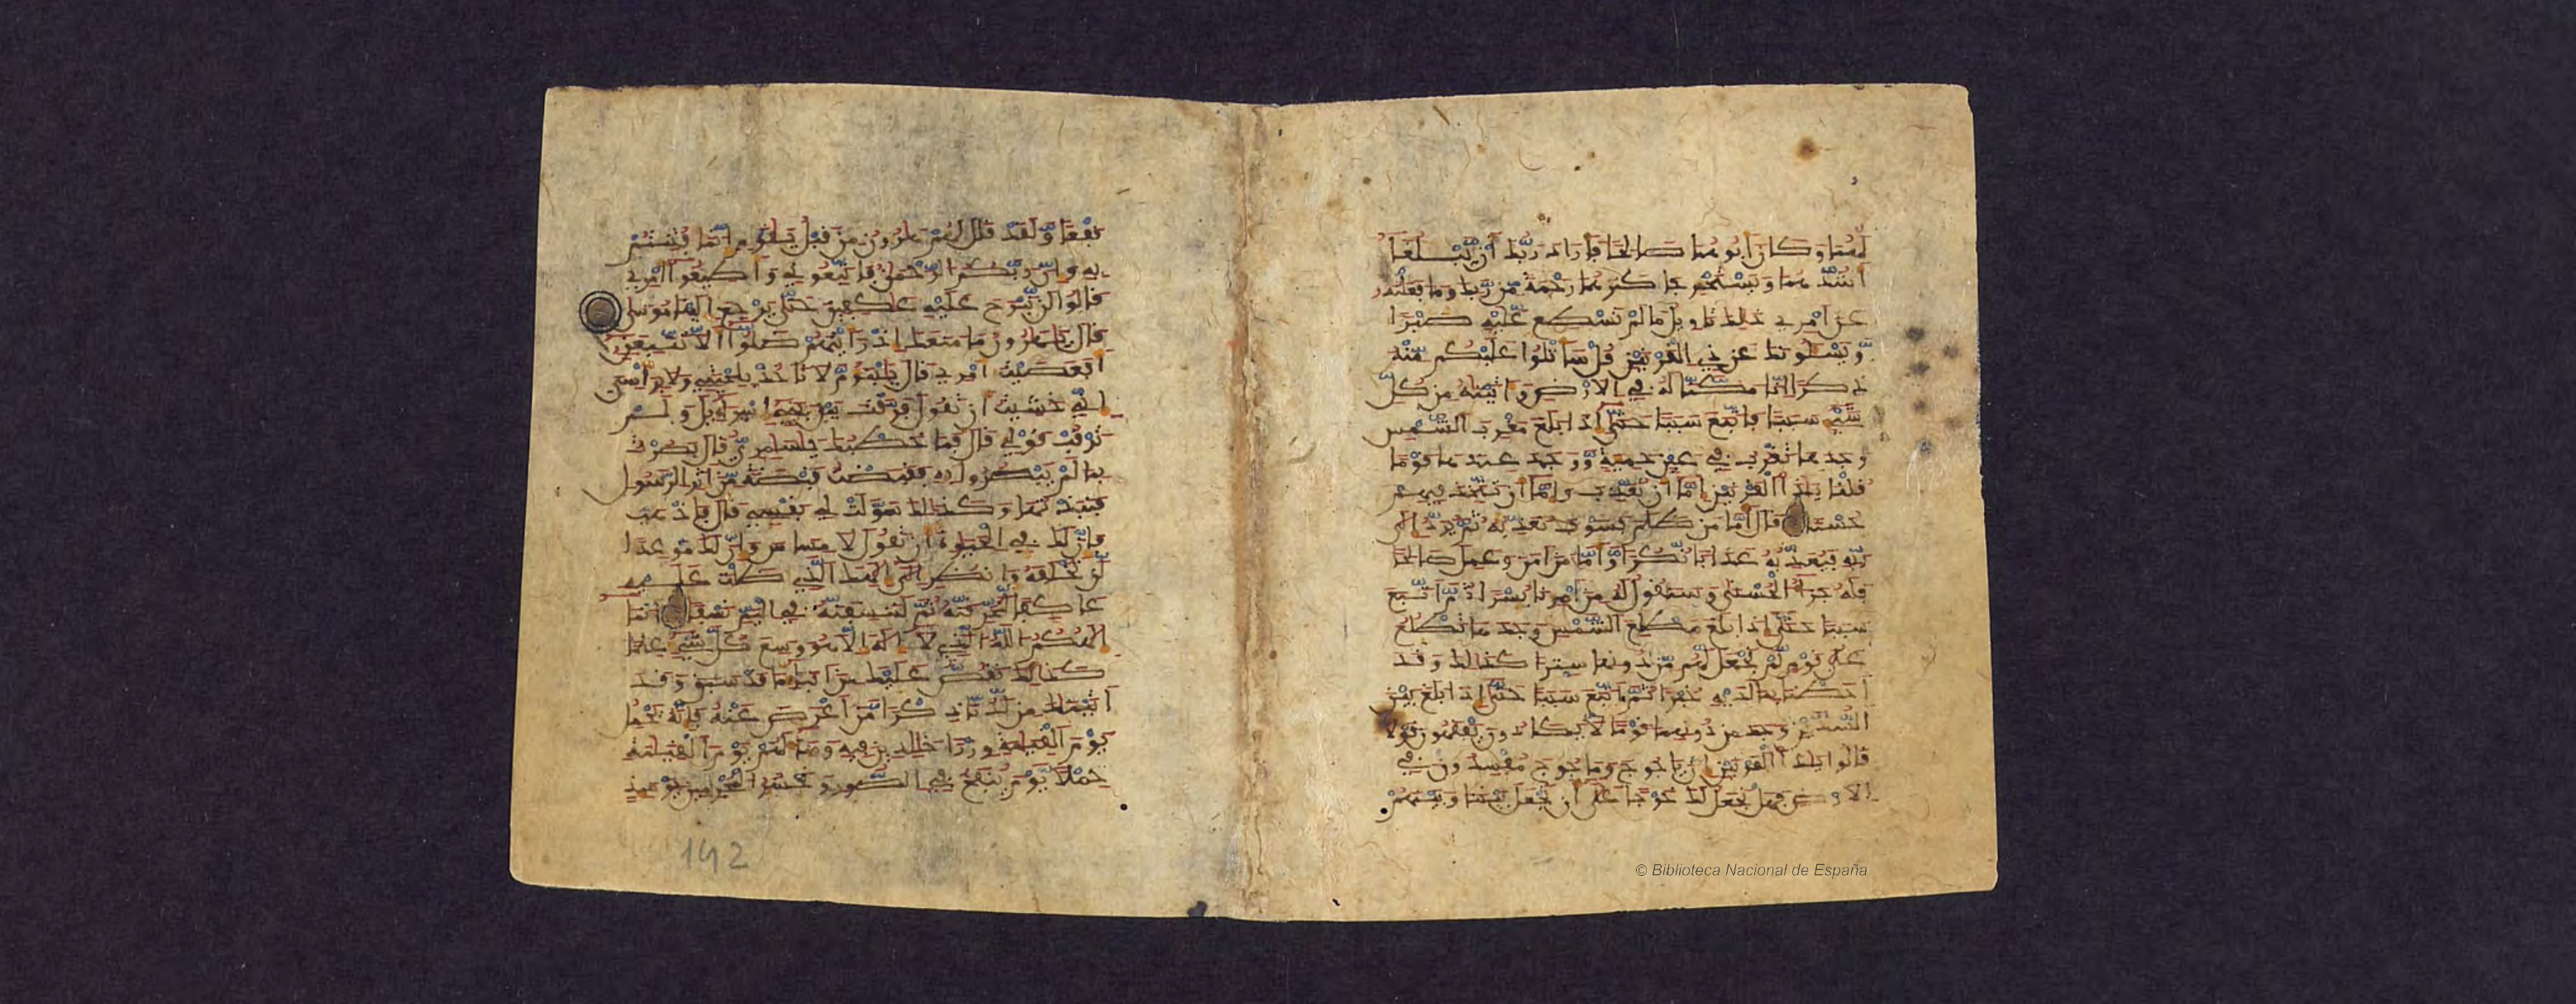 لَّهُمَا وَكَانَ أَبُوهُمَا صَالِحًا فَأَرَادَ رَبُّكَ أَنْ يَّبْلُغَا
أَشُدَّهُمَا وَيَسْتَخْرِجَا كَنزَهُمَا رَحْمَةً مِّن رَّبِّكَ وَمَا فَعَلْتُهُ
عَنْ أَمْرِي ذَٰلِكَ تَأْوِيلُ مَا لَمْ تَسْطِع عَّلَيْهِ صَبْرًا
وَيَسْـَٔلُونَكَ عَن ذِي الْقَرْنَيْنِ قُلْ سَأَتْلُوا عَلَيْكُم مِّنْهُ
ذِكْرًا إِنَّا مَكَّنَّا لَهُ فِي الْأَرْضِ وَءَاتَيْنَٰهُ مِن كُلِّ
شَيْءٍ سَبَبًا فَاتَّبَعَ سَبَبًا حَتَّىٰ إِذَا بَلَغَ مَغْرِبَ الشَّمْسِ
وَجَدَهَا تَغْرُبُ فِي عَيْنٍ حَمِئَةٍ وَّوَجَدَ عِندَهَا قَوْمًا
قُلْنَا يَٰذَا الْقَرْنَيْنِ إِمَّا أَن تُعَذِّبَ وَإِمَّا أَن تَتَّخِذَ فِيهِمْ
حُسْنًا قَالَ أَمَّا مَن ظَلَمَ فَسَوْفَ نُعَذِّبُهُ ثُمَّ يُرَدُّ إِلَىٰ
رَبِّهِ فَيُعَذِّبُهُ عَذَابًا نُّكُرًا وَأَمَّا مَنْ ءَامَنَ وَعَمِلَ صَالِحًا
فَلَهُ جَزَآءُ الْحُسْنَىٰ وَسَنَقُولُ لَهُ مِنْ أَمْرِنَا يُسْرًا ثُمَّ اتَّبَعَ
سَبَبًا حَتَّىٰ إِذَا بَلَغَ مَطْلِعَ الشَّمْسِ وَجَدَهَا تَطْلُعُ
عَلَىٰ قَوْمٍ لَّمْ نَجْعَل لَّهُم مِّن دُونِهَا سِتْرًا كَذَٰلِكَ وَقَدْ
أَحَطْنَا بِمَا لَدَيْهِ خُبْرًا ثُمَّ اتَّبَعَ سَبَبًا حَتَّىٰ إِذَا بَلَغَ بَيْنَ
السُّدَّيْنِ وَجَدَ مِن دُونِهِمَا قَوْمًا لَّا يَكَادُونَ يَفْقَهُونَ قَوْلًا
قَالُوا يَٰذَا الْقَرْنَيْنِ إِنَّ يَاجُوجَ وَمَاجُوجَ مُفْسِدُونَ فِي
الْأَرْضِ فَهَلْ نَجْعَلُ لَكَ خَرْجًا عَلَىٰ أَن تَجْعَلَ بَيْنَنَا وَبَيْنَهُمْ
نَفْعًا وَلَقَدْ قَالَ لَهُمْ هَٰرُونُ مِن قَبْلُ يَٰقَوْمِ إِنَّمَا فُتِنتُم
بِهِ وَإِنَّ رَبَّكُمُ الرَّحْمَٰنُ فَاتَّبِعُونِي وَأَطِيعُوا أَمْرِي
قَالُوا لَن نَّبْرَحَ عَلَيْهِ عَٰكِفِينَ حَتَّىٰ يَرْجِعَ إِلَيْنَا مُوسَىٰ
قَالَ يَٰهَٰرُونُ مَا مَنَعَكَ إِذْ رَأَيْتَهُمْ ضَلُّوا أَلَّا تَتَّبِعَنِ
أَفَعَصَيْتَ أَمْرِي قَالَ يَبْنَؤُمَّ لَا تَأْخُذْ بِلِحْيَتِي وَلَا بِرَأْسِي
إِنِّي خَشِيتُ أَن تَقُولَ فَرَّقْتَ بَيْنَ بَنِي إِسْرَآءِيلَ وَلَمْ
تَرْقُبْ قَوْلِي قَالَ فَمَا خَطْبُكَ يَٰسَٰمِرِيُّ قَالَ بَصُرْتُ
بِمَا لَمْ يَبْصُرُوا بِهِ فَقَبَضْتُ قَبْضَةً مِّنْ أَثَرِ الرَّسُولِ
فَنَبَذْتُهَا وَكَذَٰلِكَ سَوَّلَتْ لِي نَفْسِي قَالَ فَاذْهَبْ
فَإِنَّ لَكَ فِي الْحَيَوٰةِ أَن تَقُولَ لَا مِسَاسَ وَإِنَّ لَكَ مَوْعِدًا
لَّن تُخْلَفَهُ وَانظُرْ إِلَىٰ إِلَٰهِكَ الَّذِي ظَلْتَ عَلَيْهِ
عَاكِفًا لَّنُحَرِّقَنَّهُ ثُمَّ لَنَنسِفَنَّهُ فِي الْيَمِّ نَسْفًا إِنَّمَا
إِلَٰهُكُمُ اللَّهُ الَّذِي لَا إِلَٰهَ إِلَّا هُوَ وَسِعَ كُلَّ شَيْءٍ عِلْمًا
كَذَٰلِكَ نَقُصُّ عَلَيْكَ مِنْ أَنبَآءِ مَا قَدْ سَبَقَ وَقَدْ
ءَاتَيْنَٰكَ مِن لَّدُنَّا ذِكْرًا مَّنْ أَعْرَضَ عَنْهُ فَإِنَّهُ يَحْمِلُ
يَوْمَ الْقِيَٰمَةِ وِزْرًا خَٰلِدِينَ فِيهِ وَسَآءَ لَهُمْ يَوْمَ الْقِيَٰمَةِ
حِمْلًا يَوْمَ يُنفَخُ فِي الصُّورِ وَنَحْشُرُ الْمُجْرِمِينَ يَوْمَئِذٍ
192
© Biblioteca Nacional de España